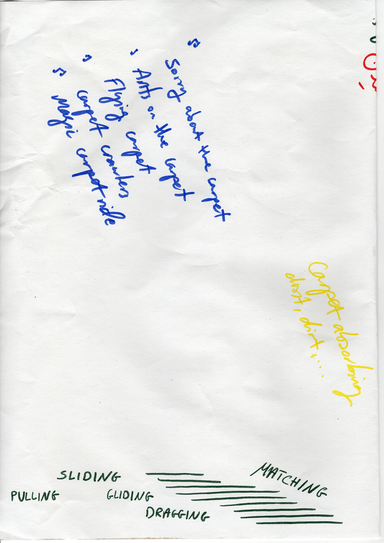 ♫ Sorry about the carpet
♪ Ants on the carpet
Flying carpet
♪ carpet crawlers
♫ Magic carpet ride
Carpet absorbing
dust, dirt, ....
SLIDING
MATCHING
PULLING
GLIDING
DRAGGING